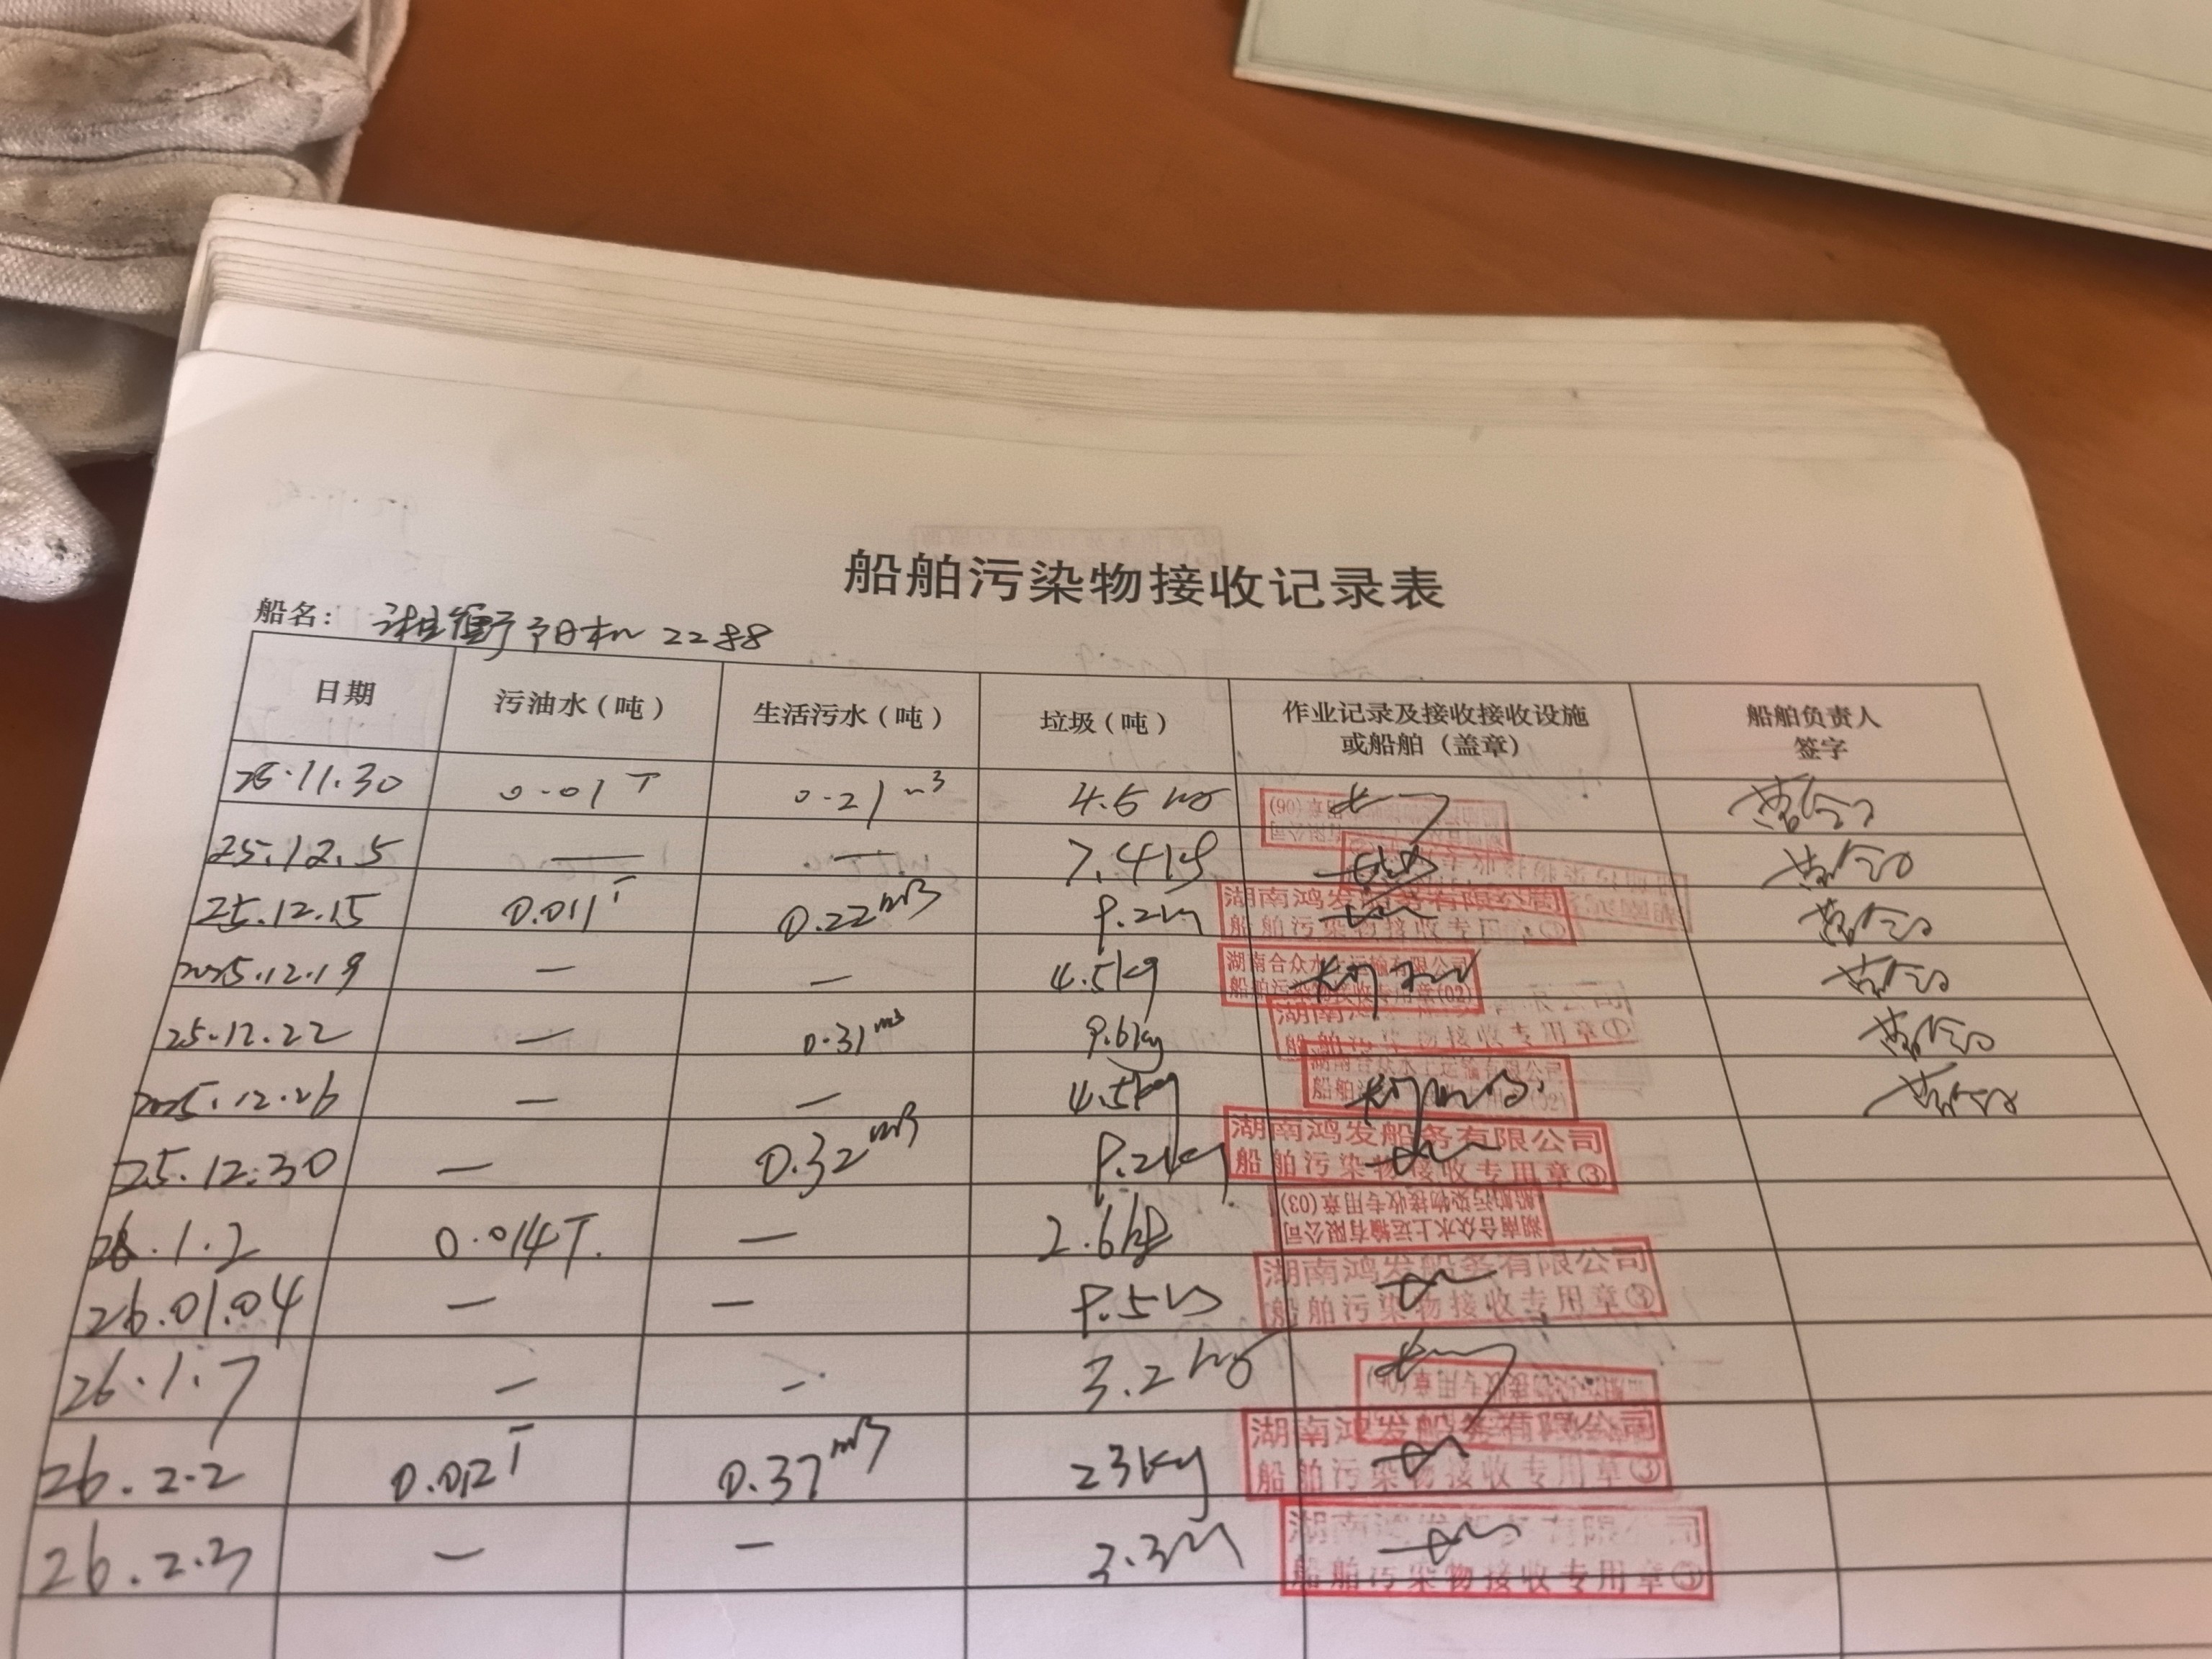 船舶污染物接收记录表
船名： 湘衡阳机2288
日期 污油水（吨） 生活污水（吨） 垃圾（吨） 作业记录及接收接收设施或船舶（盖章） 船舶负责人签字
25.11.30 0.01T 0.21m³
25.12.5 — — 7.4kg
25.12.15 0.011T 0.22m³ 9.2 湖南鸿发船务有限公司 船舶污染物接收专用章
2025.12.19 — — 4.5kg 湖南合众水上运输有限公司 船舶污染物接收专用章(02)
25.12.22 — 0.31m³ 9.6kg 船舶污染物接收专用章①
2025.12.26 — — 4.5kg 湖南合众水上运输有限公司
25.12.30 — 0.32m³ 9.2kg 湖南鸿发船务有限公司 船舶污染物接收专用章③
26.1.2 0.014T. — 2.6kg 湖南合众水上运输有限公司 船舶污染物接收专用章(03)
26.01.04 — — 9.5 湖南鸿发船务有限公司 船舶污染物接收专用章
26.1.7 — — 3.2
26.2.2 0.012T 0.37m³ 23kg 湖南鸿发船务有限公司 船舶污染物接收专用章③
26.2.3 — — 3.3 船舶污染物接收专用章